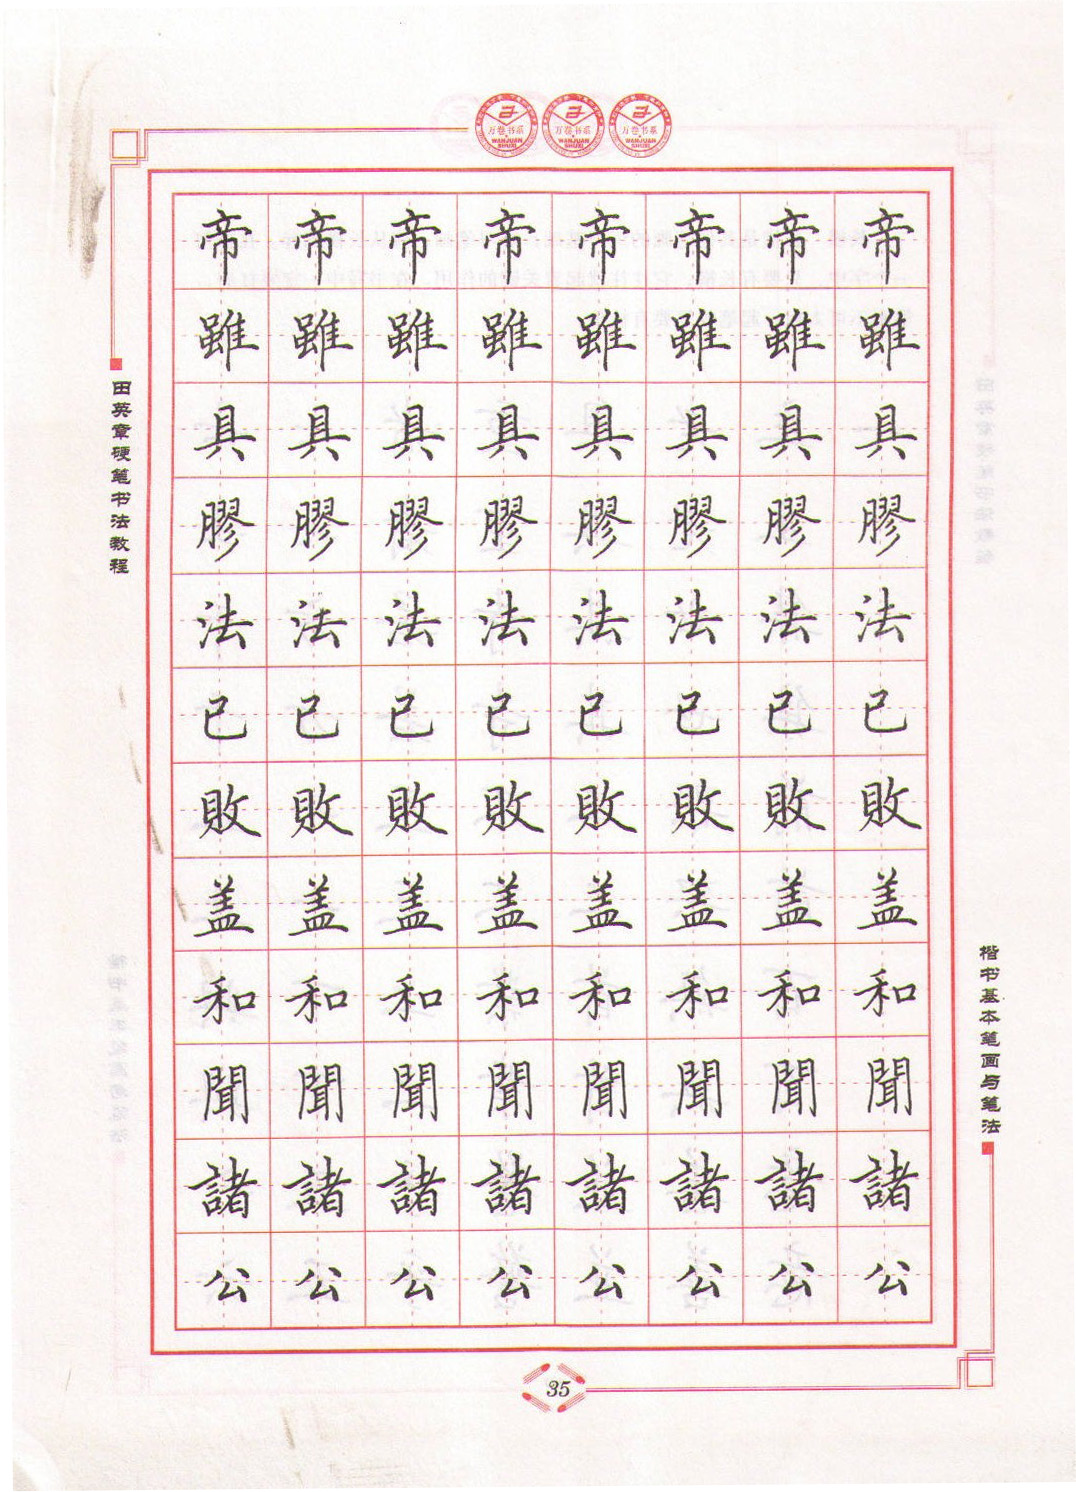 万卷书系 万卷书系 万卷书系
WANJUAN WANJUAN WANJUAN
SHUXI SHUXI SHUXI
田英章硬笔书法教程
帝帝帝帝帝帝帝帝
雖雖雖雖雖雖雖雖
具具具具具具具具
膠膠膠膠膠膠膠膠
法法法法法法法法
已已已已已已已已
敗敗敗敗敗敗敗敗
盖盖盖盖盖盖盖盖
和和和和和和和和
聞聞聞聞聞聞聞聞
諸諸諸諸諸諸諸諸
公公公公公公公公
楷书基本笔画与笔法
35